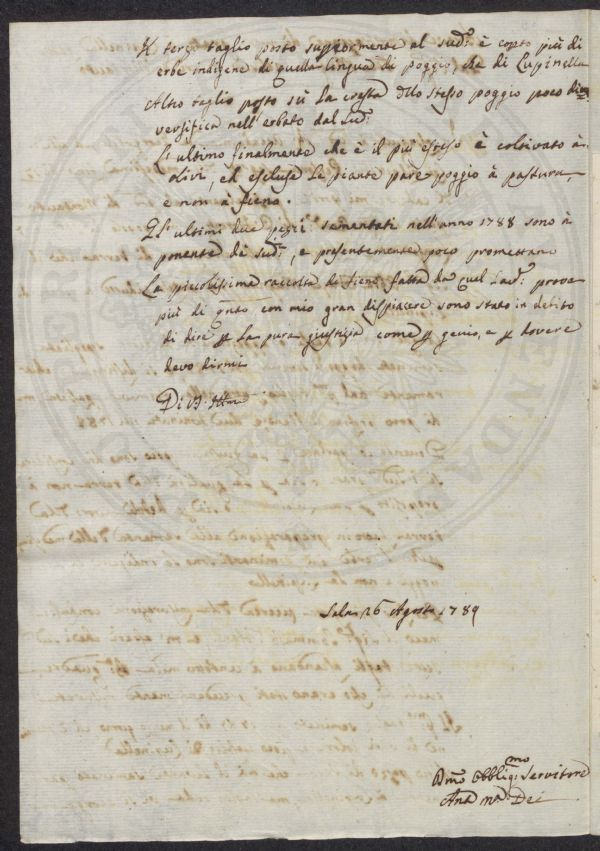 Il terzo taglio posto superiormente al sud.º è copto più di
erbe indigene di quella lingua di poggio, che di Lupinella
Altro taglio posto sù la cresta dello stesso poggio poco di=
versifica nell'erbato dal sud.º
L'ultimo finalmente che è il più esteso è coltivato à
olivi, ed escluse le piante pare poggio à pastura,
e non a fieno.
Gl'ultimi due pezzi sementati nell'anno 1788 sono à
ponente de sud.i, e presentemente poco promettano
La piccolissima raccolta di fieno fatta da quel Lav.e prova
più di q.nto con mio gran dispiacere sono stato in debito
di dire p la pura giustizia come p genio, e p dovere
devo dirmi
Di V.
Sala 26 Agosto 1789
Obblig.mo Servitore
Ant. M.a Dei